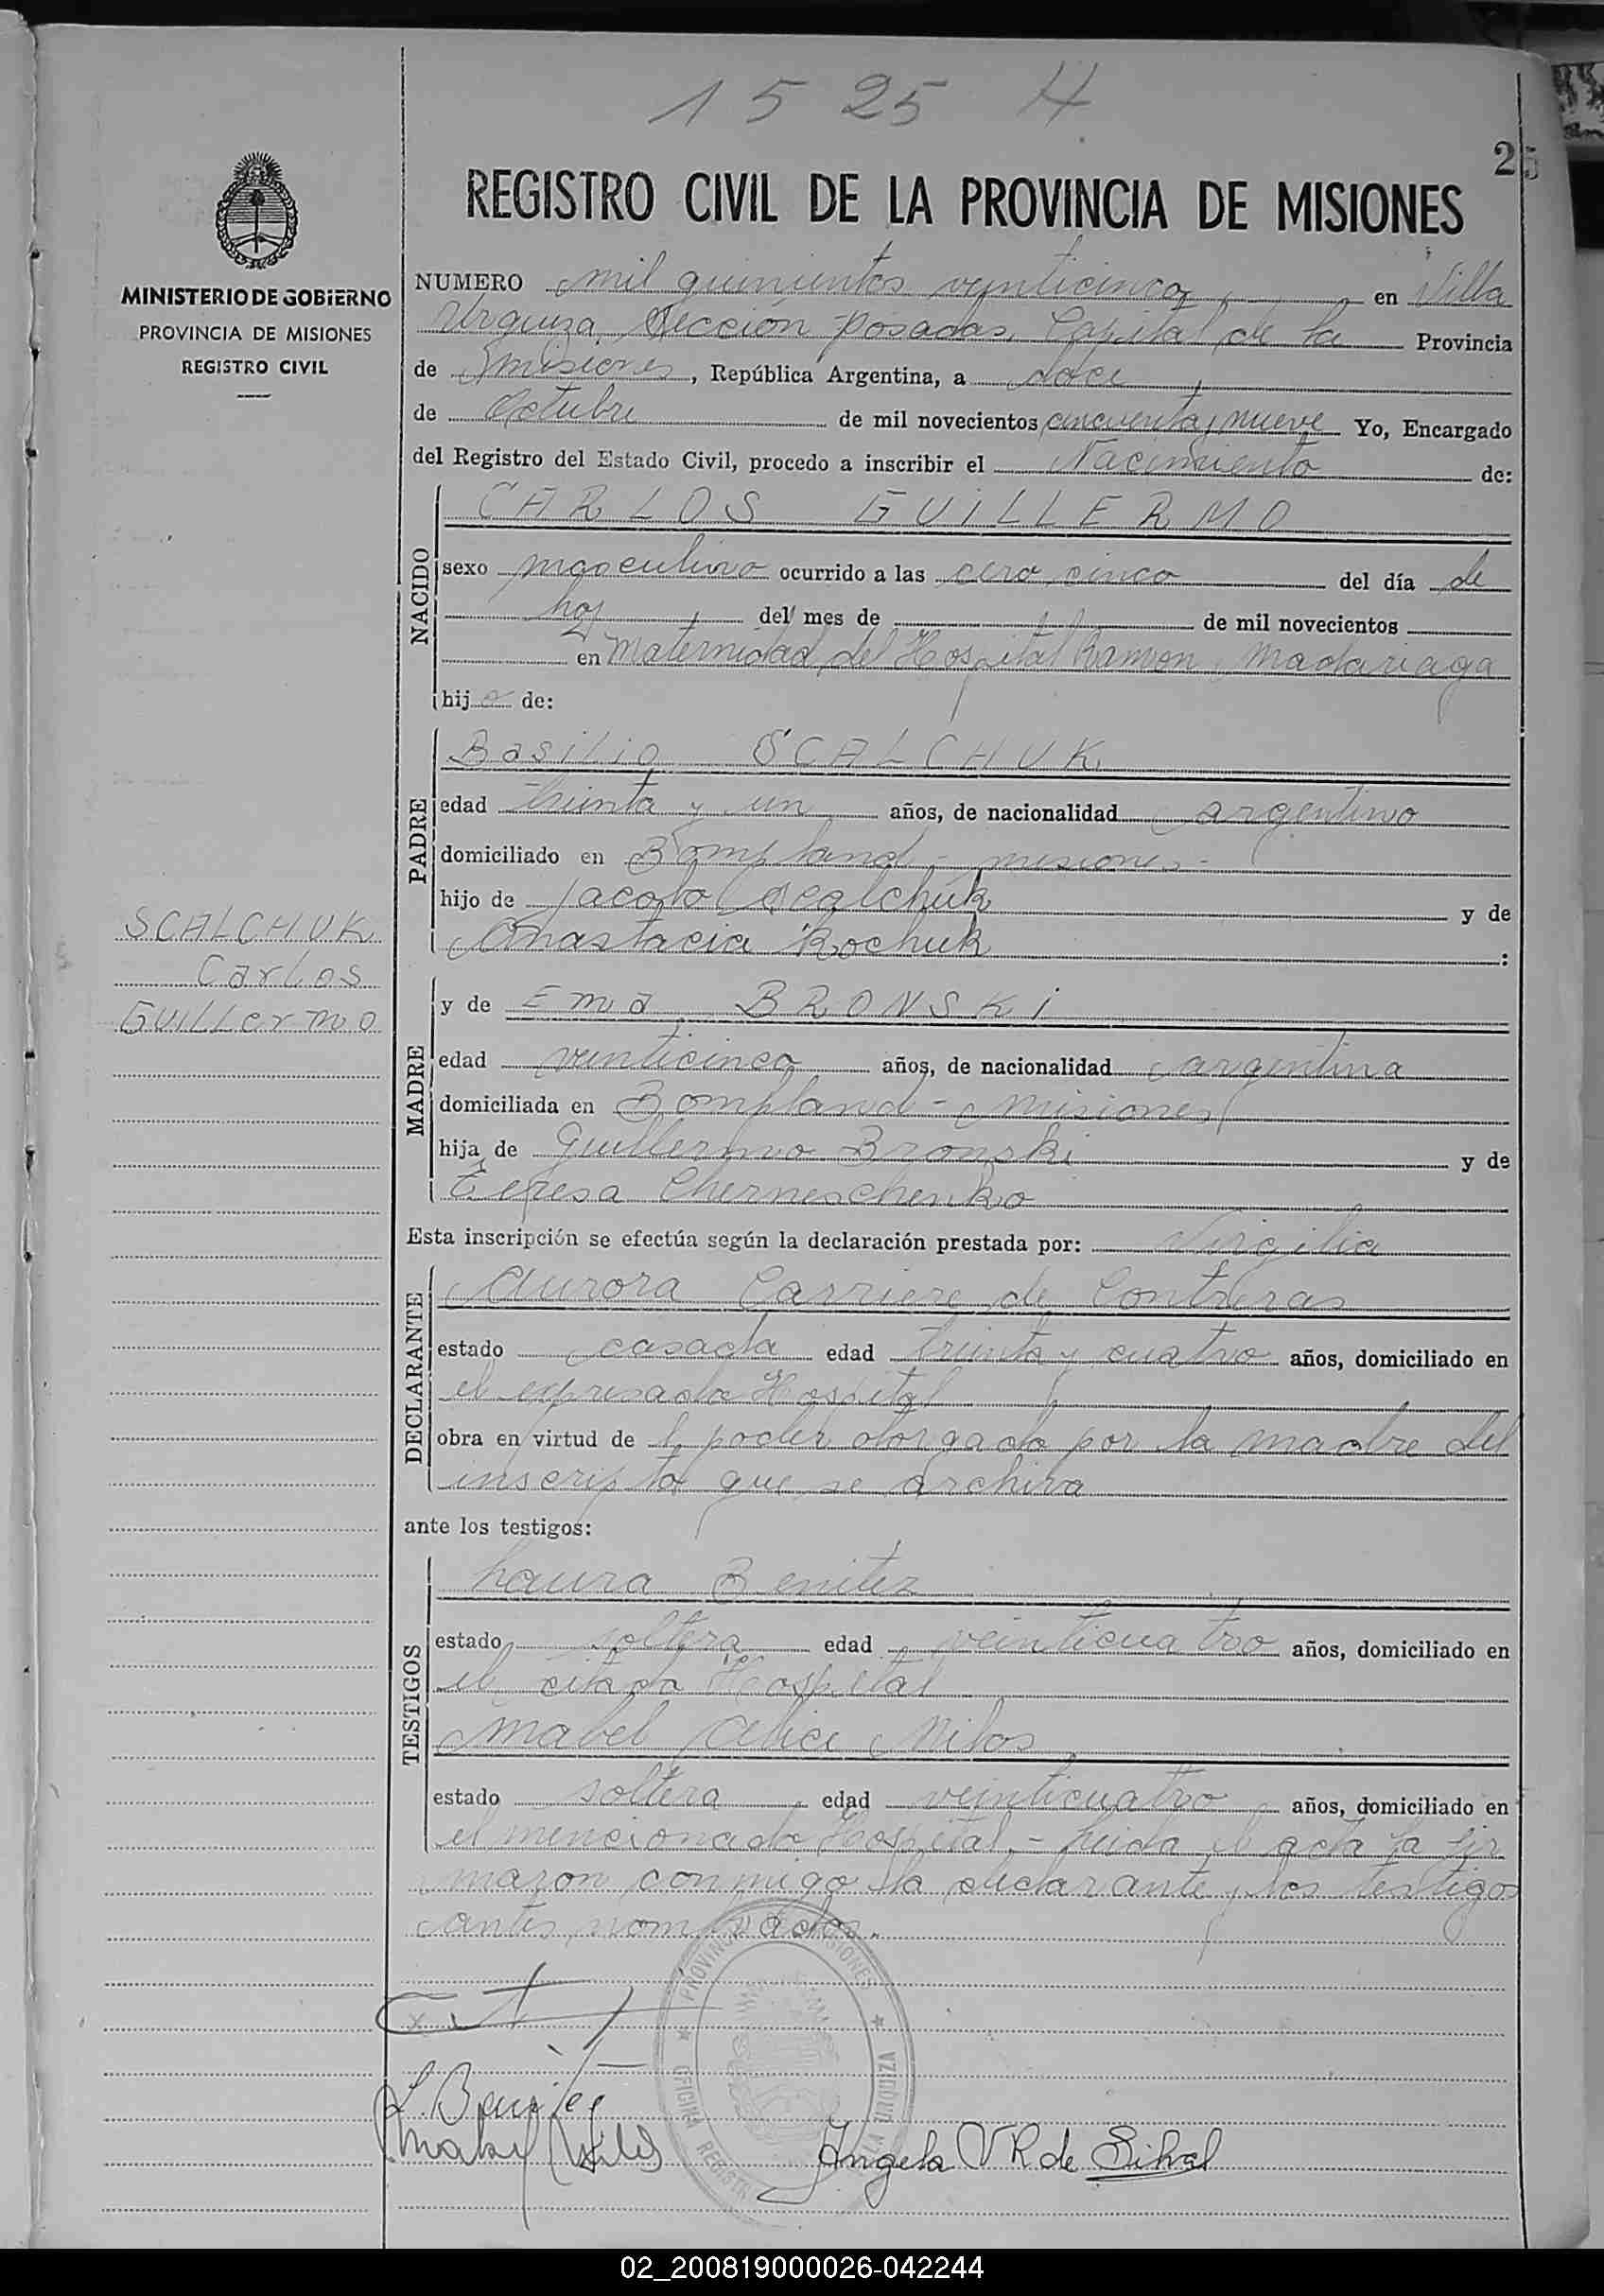 1525 H
25
REGISTRO CIVIL DE LA PROVINCIA DE MISIONES
MINISTERIO DE GOBIERNO
PROVINCIA DE MISIONES
REGISTRO CIVIL
NUMERO mil quinientos veinticinco en Villa
Urquiza, Sección Posadas, Capital de la Provincia
de Misiones, República Argentina, a doce
de Octubre de mil novecientos cincuenta y nueve Yo, Encargado
del Registro del Estado Civil, procedo a inscribir el Nacimiento de:
NACIDO
CARLOS GUILLERMO
sexo masculino ocurrido a las cero cinco del día de
hoy del mes de de mil novecientos
en Maternidad del Hospital Ramon Madariaga
hijo de:
PADRE
Basilio SCALCHUK
edad treinta y un años, de nacionalidad argentino
domiciliado en Bompland - Misiones -
hijo de Jacobo Scalchuk y de
Anastacia Kochuk :
SCALCHUK
Carlos
Guillermo
MADRE
y de Ema BRONSKI
edad veinticinco años, de nacionalidad argentina
domiciliada en Bompland - Misiones
hija de Guillermo Bronski y de
Teresa Cherneschenko
Esta inscripción se efectúa según la declaración prestada por: Virgilia
DECLARANTE
Aurora Carriere de Contreras
estado casada edad treinta y cuatro años, domiciliado en
el expresado Hospital
obra en virtud de l poder otorgado por la madre del
inscripto que se archiva
ante los testigos:
TESTIGOS
Laura Benitez
estado soltera edad veinticuatro años, domiciliado en
el citado Hospital
Mabel Alice Milos
estado soltera edad veinticuatro años, domiciliado en
el mencionado Hospital - Leida el acta la fir
maron conmigo la declarante y los testigos
antes nombrados.
PROVINCIA DE MISIONES
OFICINA REGISTRO VILLA URQUIZA
L. Benitez
Mabel Milos
Angela V R de Sihal
02_200819000026-042244